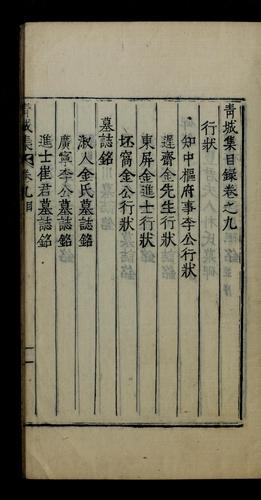 青城集目録卷之九
行狀
知中樞府事李公行狀
遲齋金先生行狀
東屏金進士行狀
坯窩金公行狀
墓誌銘
淑人金氏墓誌銘
廣寧李公墓誌銘
進士崔君墓誌銘
青城集 卷九目 一